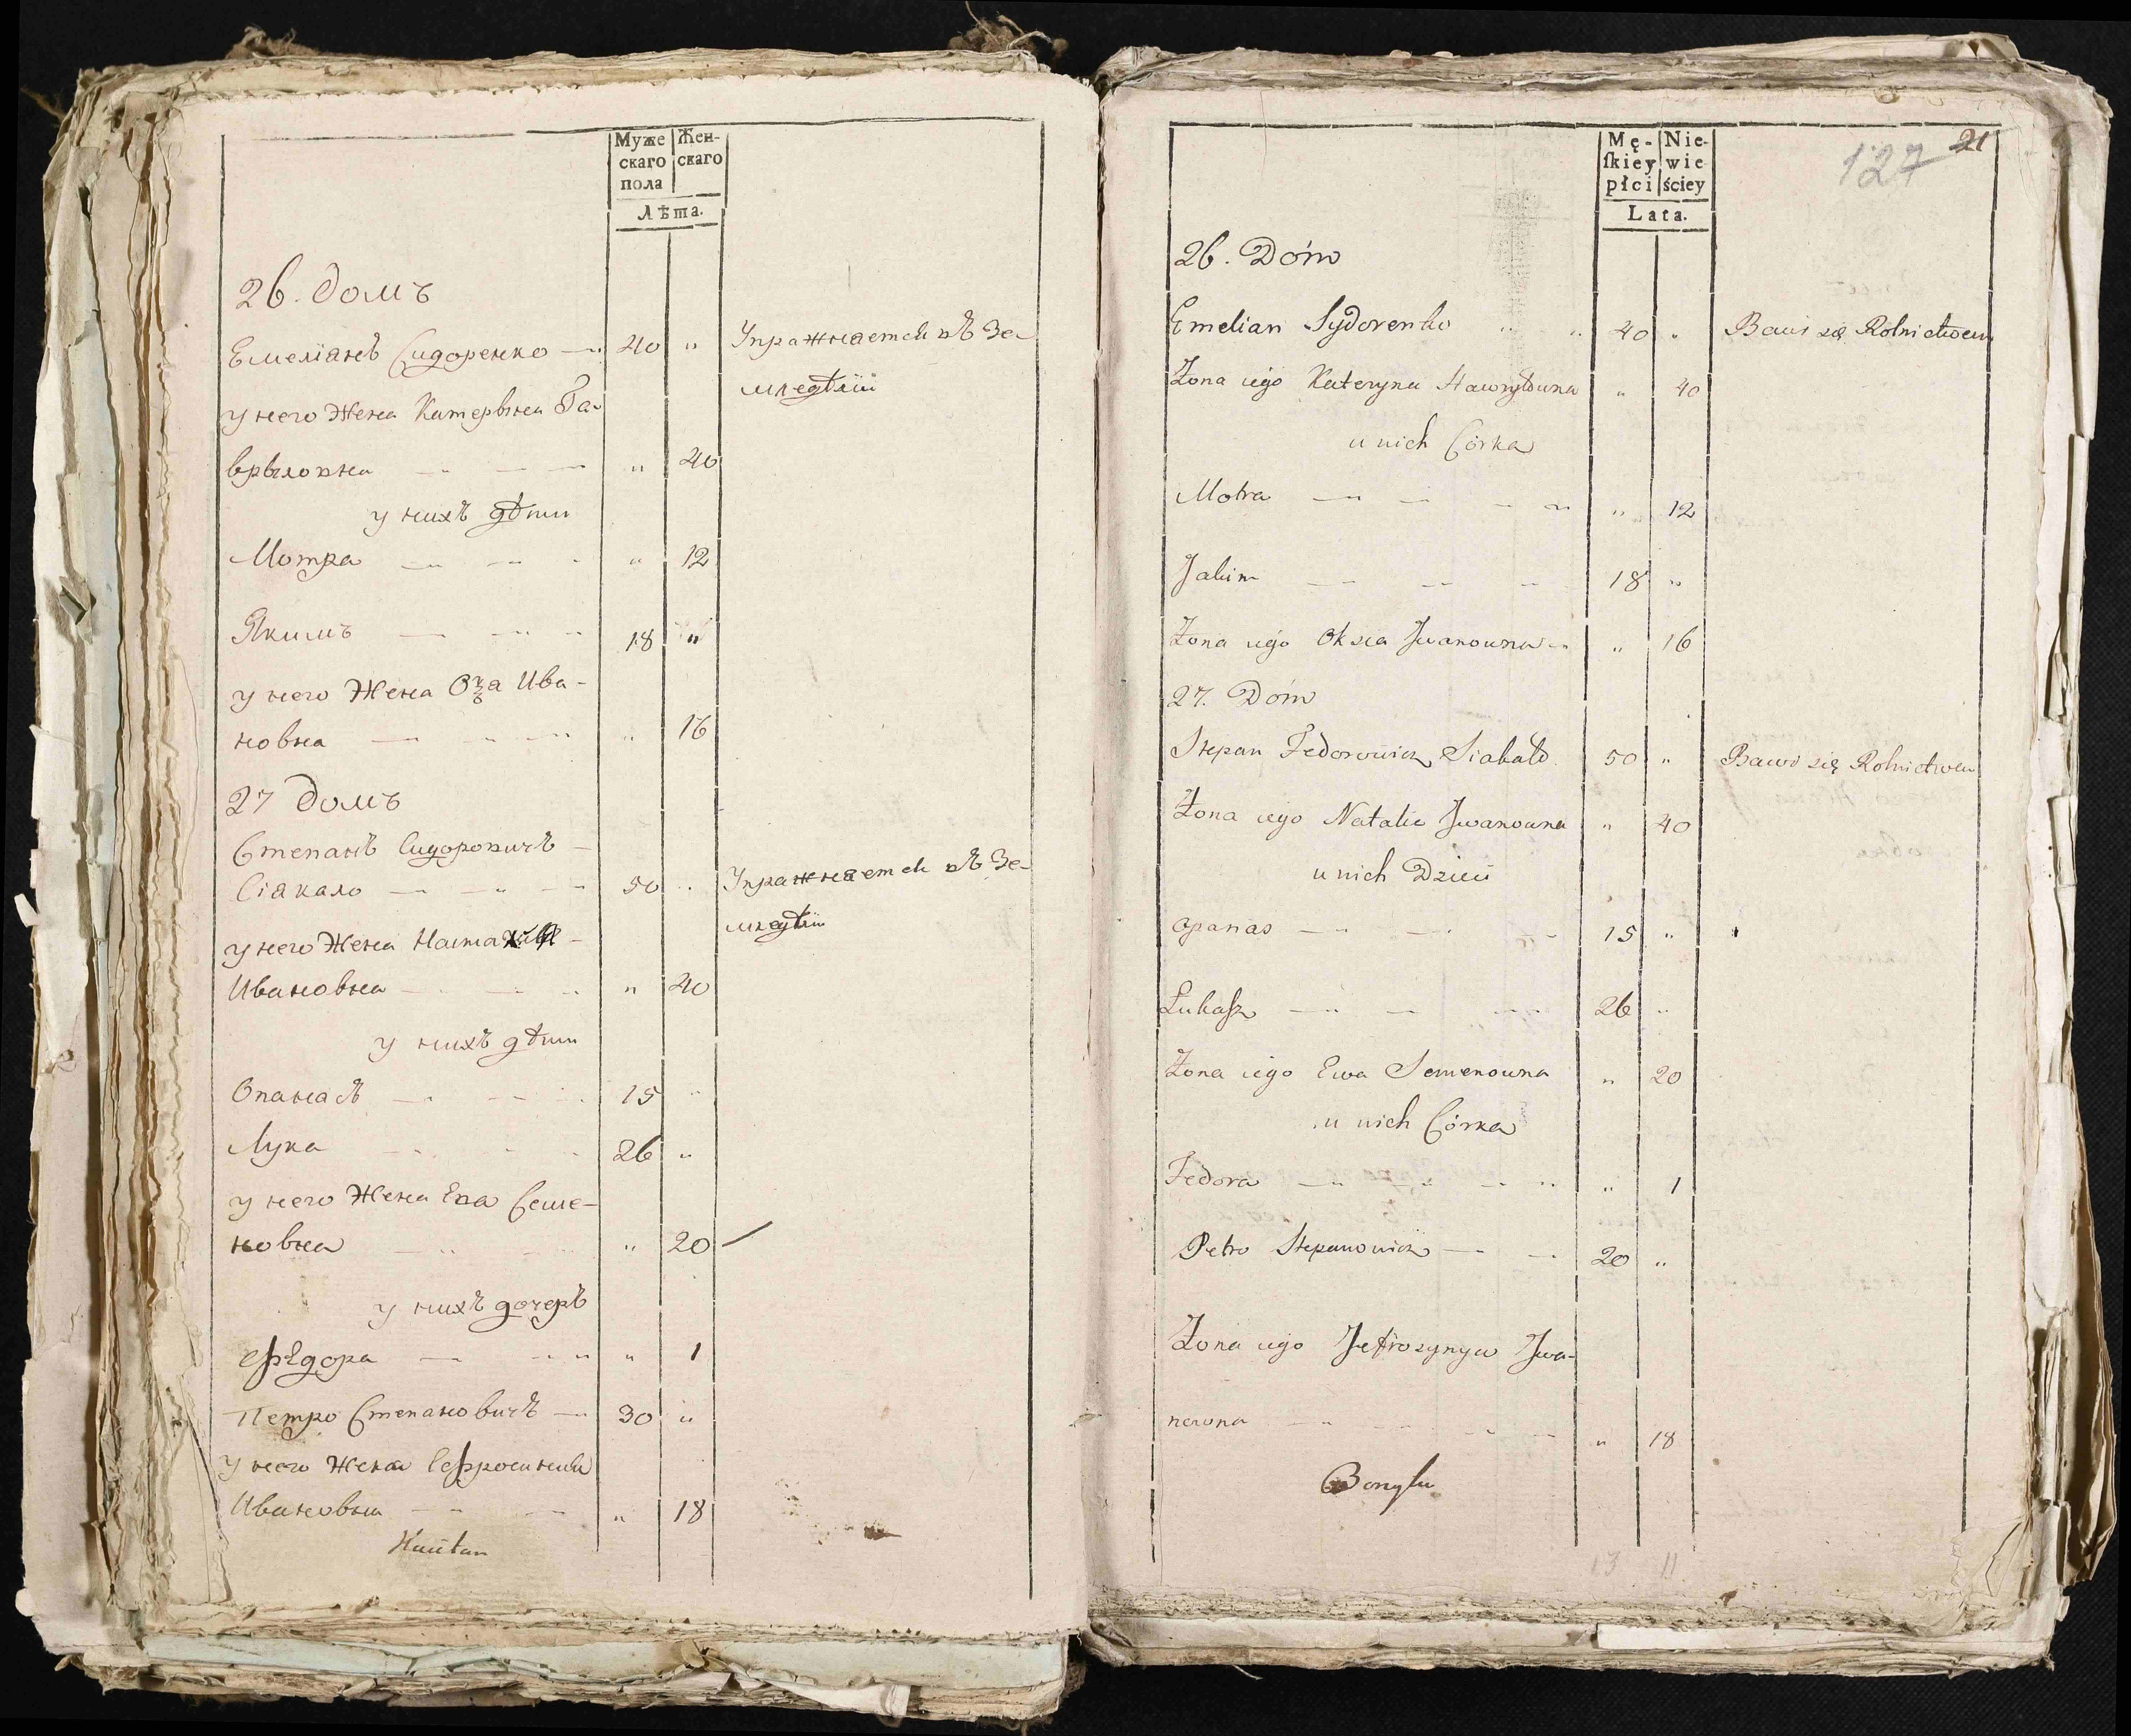 Муже Жен-
скаго скаго
пола
Лѣта.
26. домъ
Емеліанъ Сидоренко 40 "
Упражняется въ Зе-
мледѣліи
у него Жена Катерына Га-
врыловна " 40
у нихъ дѣти
Мотра " 12
Якимъ 18 "
у него Жена Ива-
новна " 16
27 домъ
Степанъ Сидоровичъ
Сіакало 50 "
Упражняется въ Зе-
мледѣліи
у него Жена
Ивановна " 40
у нихъ дѣти
Опанасъ 15 "
Лука 26 "
у него Жена Ева Семе-
новна " 20
у нихъ дочеръ
Ѳедора " 1
Петро Степановичъ 30 "
у него Жена Ефросиния
Ивановна " 18
Mę- Nie-
ſkiey wie
płci ściey
Lata.
127 21
26. Dóm
Emelian Sydorenko 40 " Bawi się Rolnictwem
Żona iego Kateryna Hawryłowna " 40
u nich Córka
Motra " 12
Jakim 18 "
Żona iego Oksia Jwanowna " 16
27. Dóm
Stepan Fedorowicz Siakało 50 " Bawi się Rolnictwem
Żona iego Natalia Jwanowna " 40
u nich Dzieci
Opanas 15 "
Łukaſz 26 "
Żona iego Ewa Semenowna " 20
u nich Córka
Fedora " 1
Petro Stepanowicz 20 "
Żona iego Jefrozynya Jwa-
nowna " 18
13 11